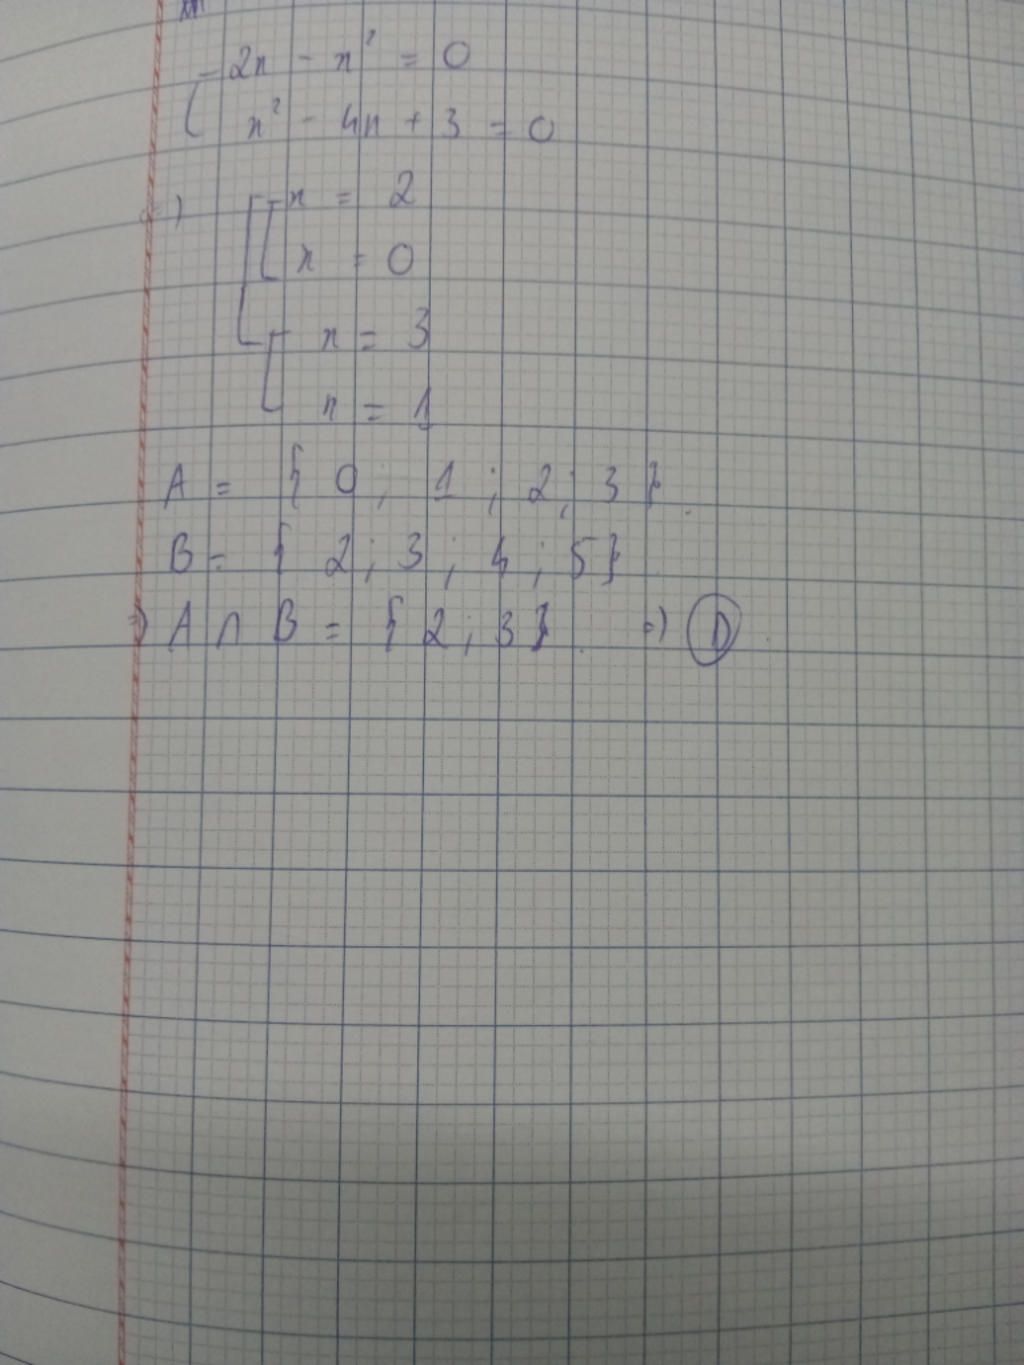 2x - x² = 0
x² - 4x + 3 = 0
=) x = 2
x = 0
x = 3
x = 1
A = { 0 ; 1 ; 2 ; 3 }.
B = { 2 ; 3 ; 4 ; 5 }
=) A ∩ B = { 2 ; 3 }. =) D.